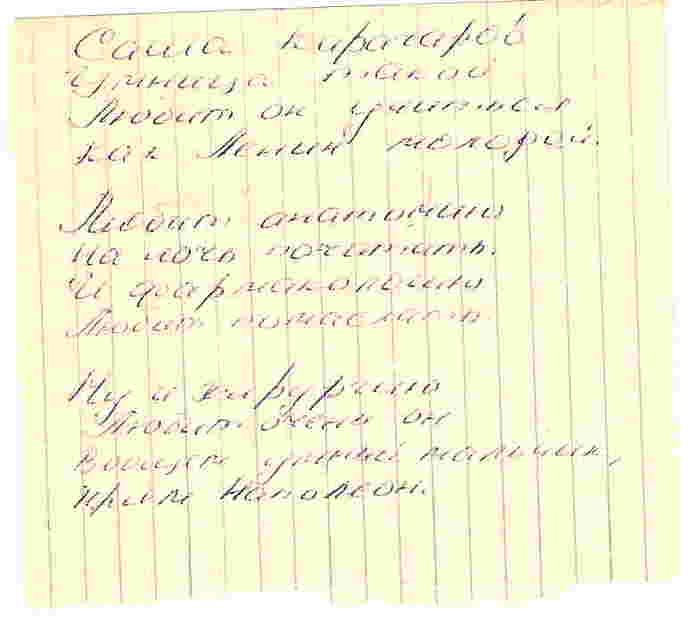 Саша Кирочаров
Умница такой
Любит он учиться
как Ленин молодой.
Любит анатомию
На ночь почитать.
И фармакопею
Любит полистать
Ну и хирургию
Любит очень он
Вобщем умный мальчик,
прям Наполеон.